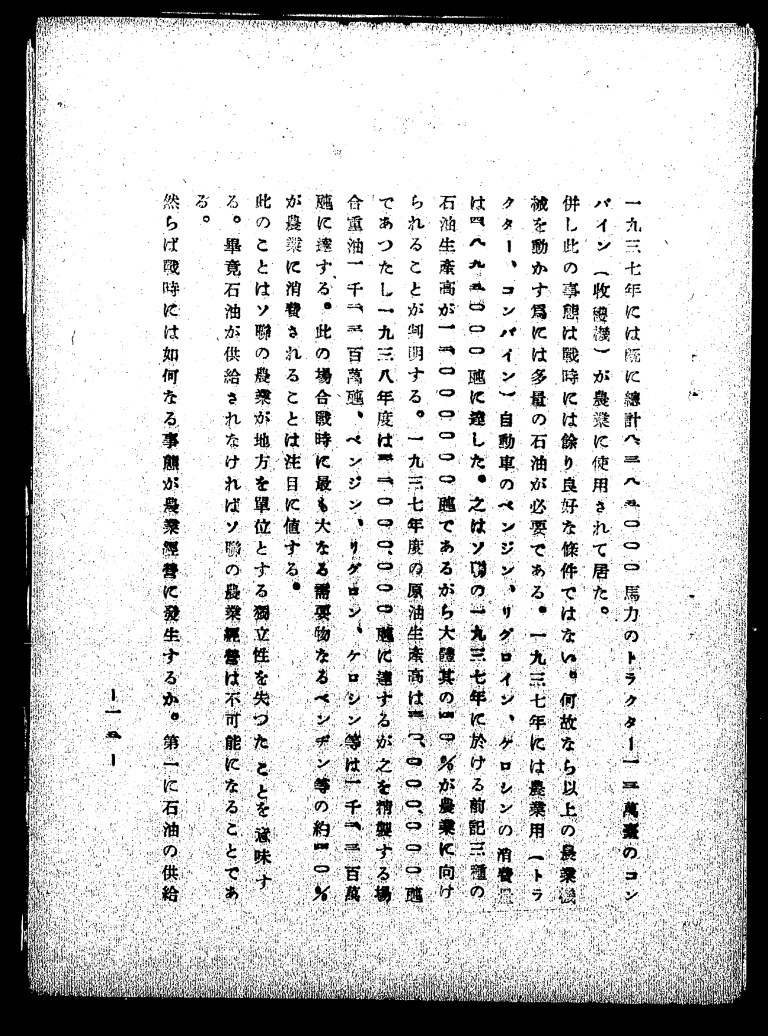 一九三七年には既に總計八三八五〇〇〇馬力のトラクター一二萬臺のコン
バイン(收穫機)が農業に使用されて居た。
併し此の事態は戰時には餘り良好な條件ではない。何故なら以上の農業機
械を動かす爲には多量の石油が必要である。一九三七年には農業用(トラ
クター、コンバイン)自動車のベンジン、リグロイン、ケロシンの消費量
は四八九五〇〇〇瓲に達した。之はソ聯の一九三七年に於ける前記三種の
石油生產高が一二〇〇〇〇〇〇瓲であるから大體其の四〇%が農業に向け
られることが判明する。一九三七年度の原油生產高は
であつたし一九三八年度は 瓲に達するが之を精製する場
合重油一千二、三百萬瓲、ベンジン、リグロン、ケロシン等は一千二、三百萬
瓲に達する。此の場合戰時に最も大なる需要物なるベンヂン等の約四〇%
が農業に消費されることは注目に値する。
此のことはソ聯の農業が地方を單位とする獨立性を失つたことを意味す
る。畢竟石油が供給されなければソ聯の農業經營は不可能になることであ
る。
然らば戰時には如何なる事態が農業經營に發生するか。第一に石油の供給